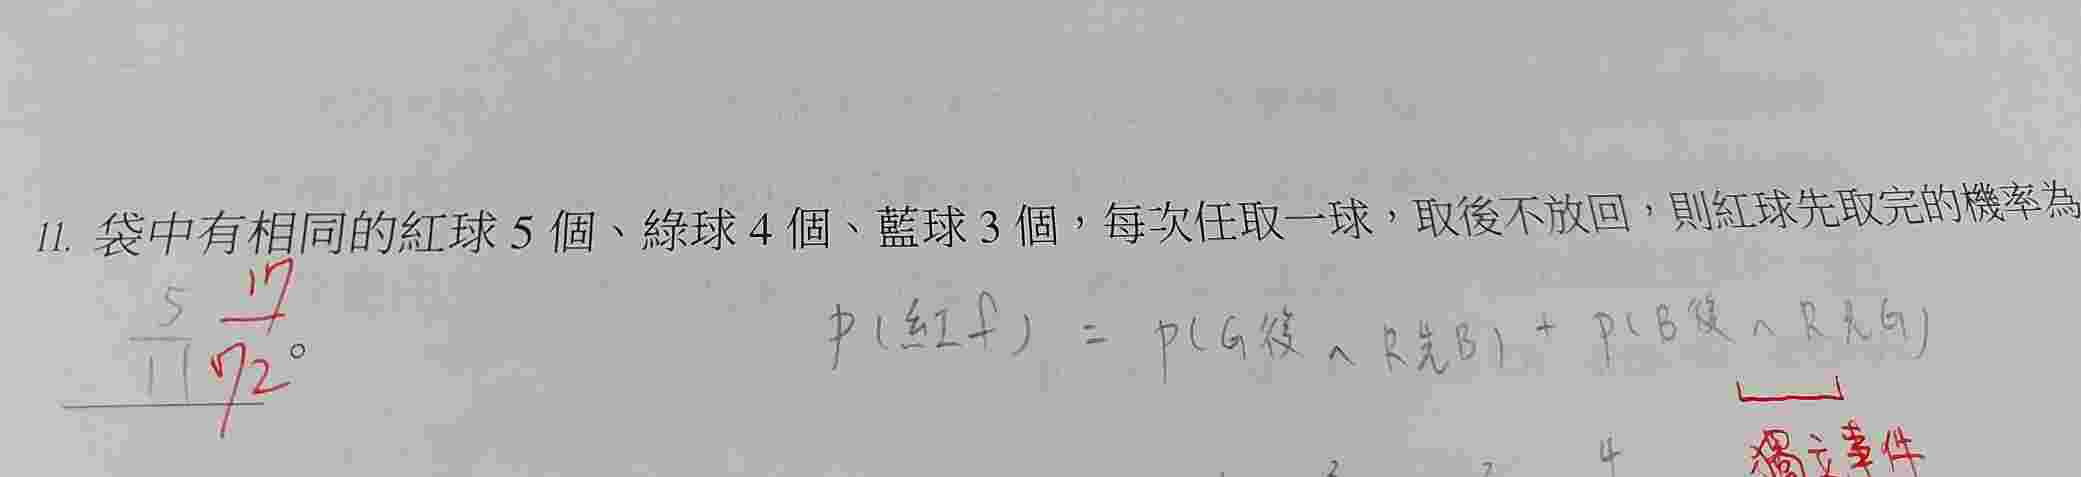 11. 袋中有相同的紅球 5 個、綠球 4 個、藍球 3 個，每次任取一球，取後不放回，則紅球先取完的機率為
5/11 17/72 。
P(紅f) = P(G後 ∩ R先B) + P(B後 ∩ R先G)
4 獨立事件